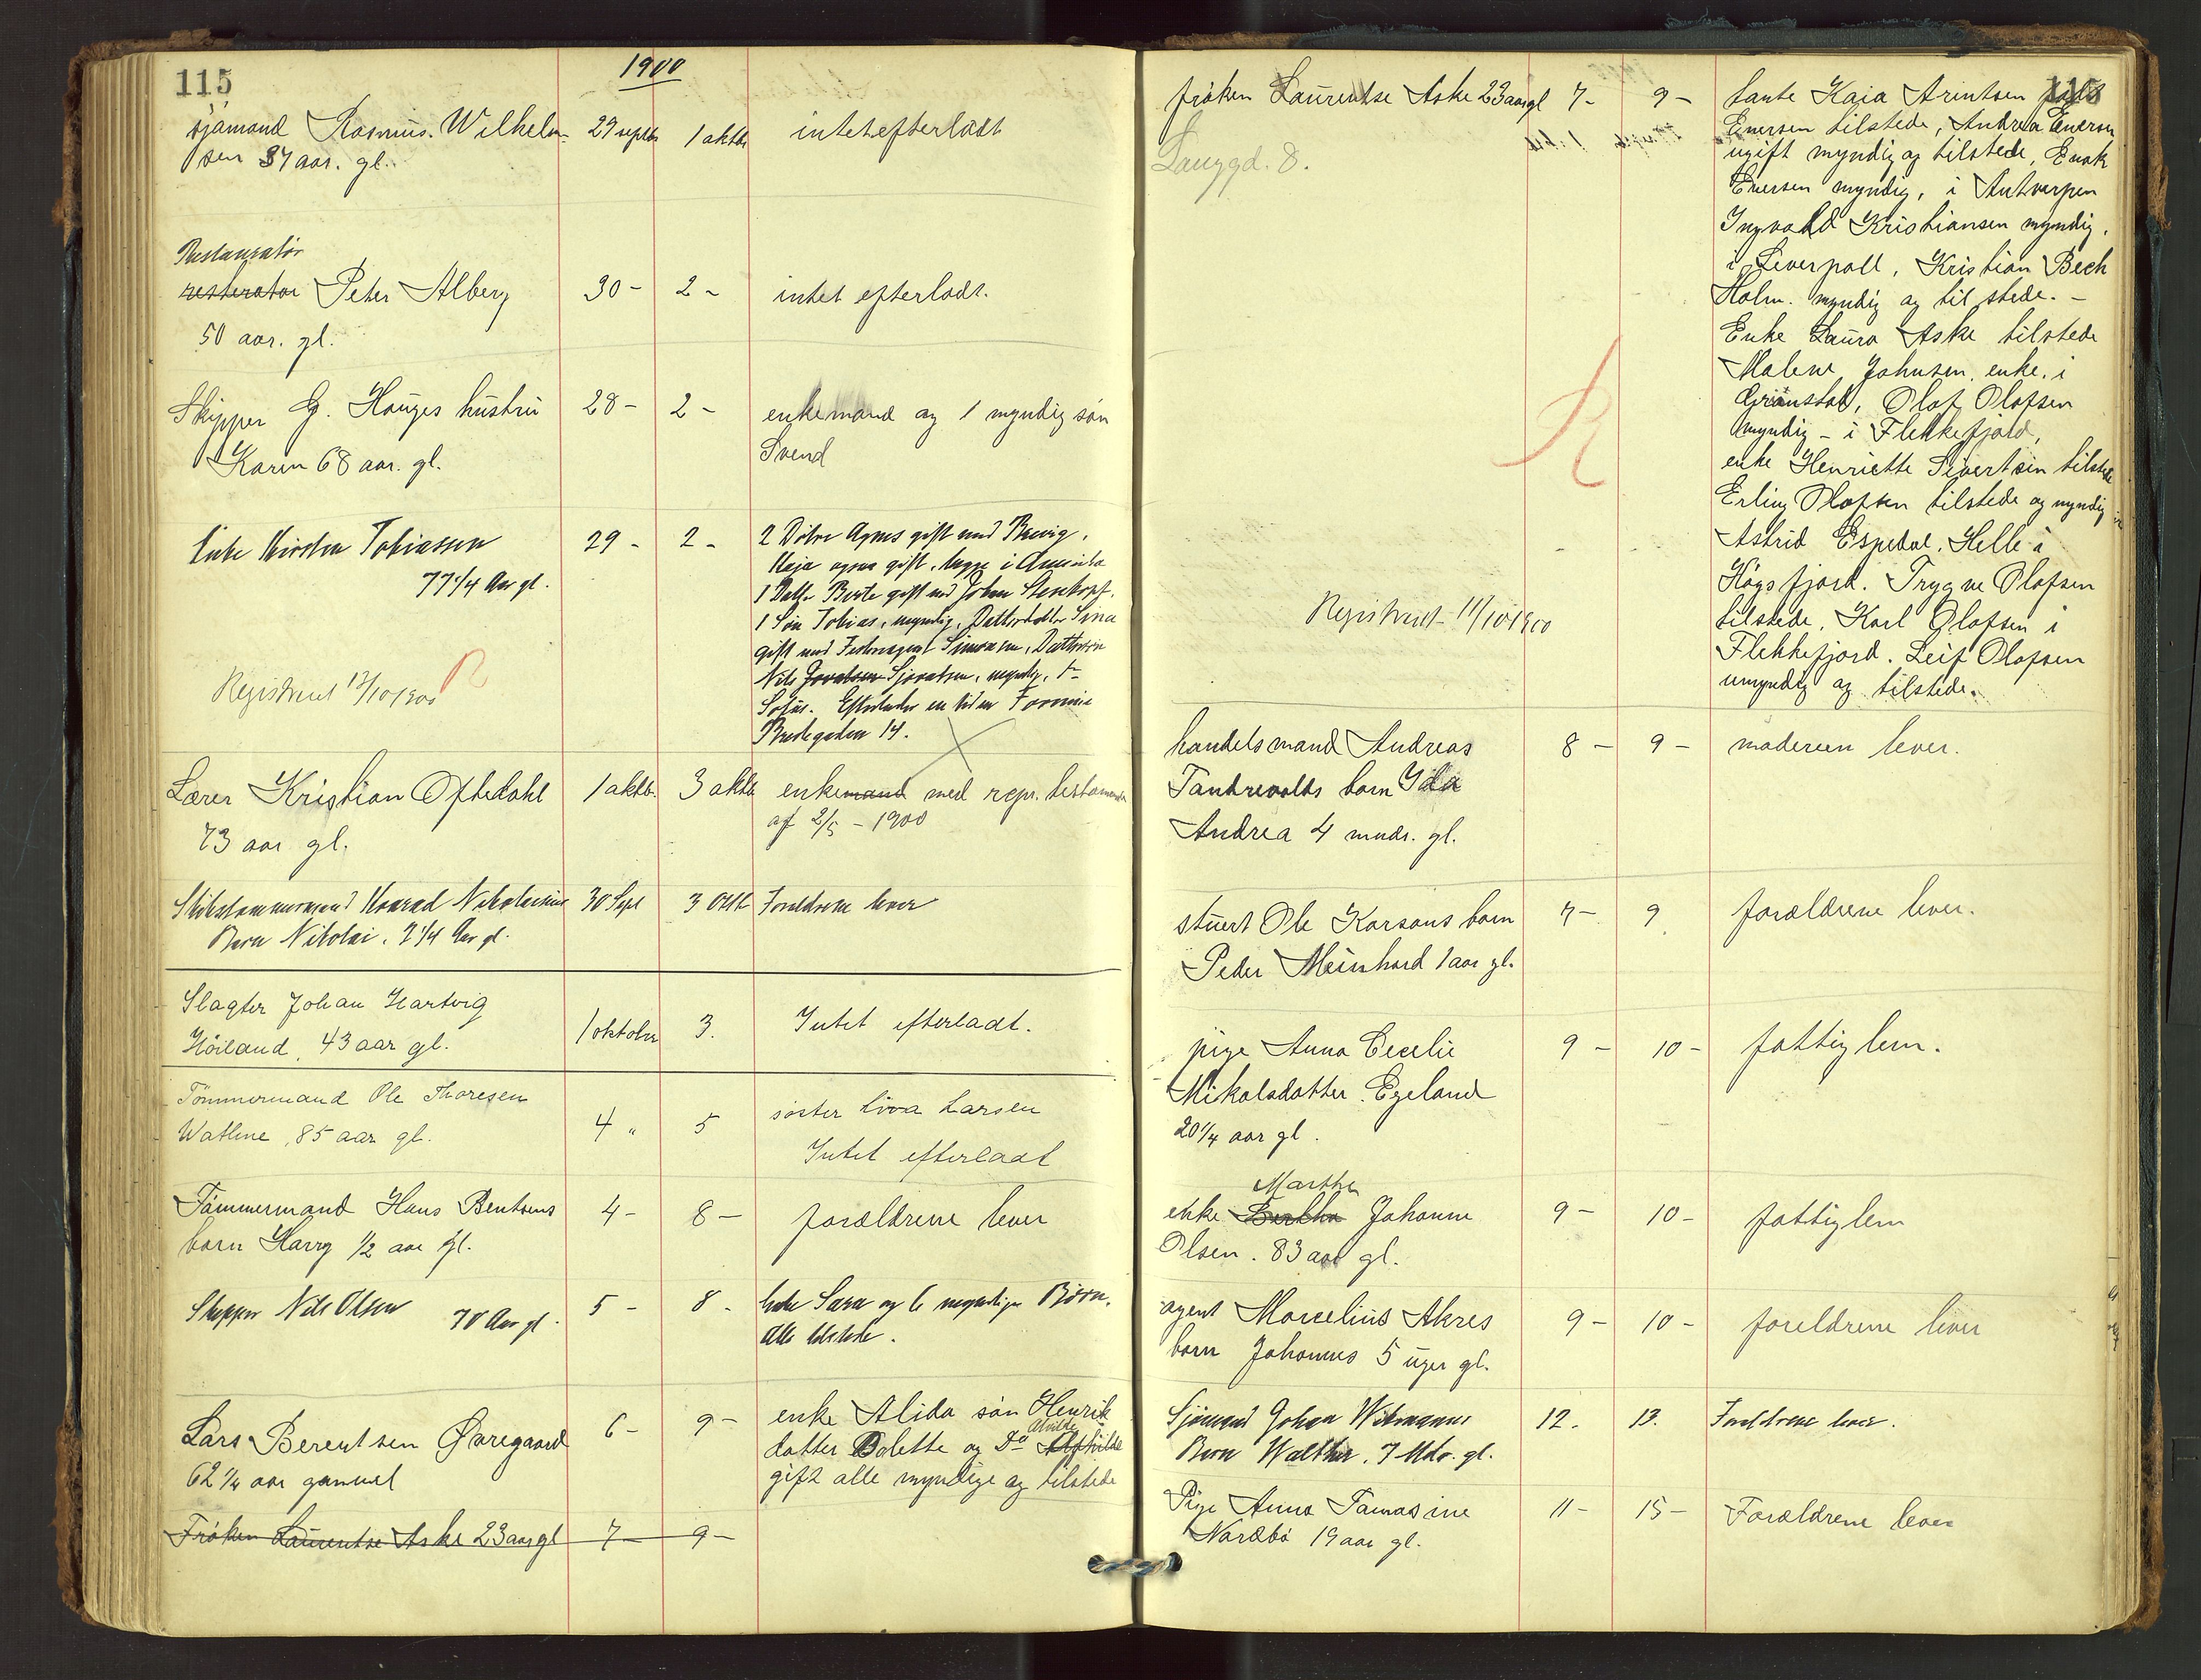 115
1900
sjømand Rasmus Wilhelm-
sen 37 aar. gl.
29 septbr
1 oktbr
intet efterladt
Restauratør
resterator Peter Alberg
50 aar. gl.
30 -
2 -
intet efterladt.
Skipper G. Houges hustru
Karen 68 aar. gl.
28 -
2 -
enkemand og 1 myndig søn
Svend
Enke Kirsten Tobiassen
77 1/4 Aar gl.
29 -
2 -
2 Døtre Agnes gift med Brevig,
Kaja ogsaa gift, begge i Amerika
1 Datter Berte gift med Johan
1 Søn Tobias, myndig, Datterdatter Sina
gift med Simonsen, Dattersøn
Nils Sjovatsen, myndig, 1 -
Sofus. Efterlader en liden Formue
Bredegaden 14.
Registreret 13/10 1900
R
Lærer Kristian Oftedahl
73 aar gl.
1 oktbr.
3 oktbr
enkemand med repr. testamente
af 2/5 - 1900
Skibstømmermand Konrad Nikolaisens
Barn Nikolai. 2 1/4 Aar gl.
30 Sept
3 Oktb
Forældrene lever
Slagter Johan Hartvig
Høiland, 43 aar gl.
1 oktober
3.
Intet efterladt.
Tømmermand Ole Thoresen
Watlene, 85 aar gl.
4 "
5
søster Liva Larsen
Intet efterladt
Tømmermand Hans Bentsens
barn Harry 1/2 aar gl.
4 -
8 -
forældrene lever
Skipper Nils Olsen 78 Aar gl.
5 -
8 -
Enke Sara og 6 myndige Børn.
alle tilstede.
Lars Berentsen Øvregaard
62 1/4 aar gammel
6 -
9 -
enke Alida søn Henrik
Alvilde
datter Bolette og Do Alfhilde
gift alle myndige og tilstede
Frøken Laurentse Aske 23 aar gl
7 -
9 -
115
frøken Laurentse Aske 23 aar gl
Langgd. 8.
7 -
9 -
tante Kaja Arintsen
Enersen tilstede, Andrea Enersen
ugift myndig og tilstede, Enok
Enersen myndig, i Antverpen
Ingvald Kristiansen myndig,
i Liverpoll, Kristian Bech
Holm. myndig og til stede. -
Enke Laura Aske tilstede
Malene Johnsen, enke, i
Grimstad, Olaf Olafsen
myndig - i Flekkefjord,
enke Henriette Sivertsen tilstede
Erling Olafsen tilstede og myndig
Astrid Espedal, Helle i
Høgsfjord. Trygve Olafsen
tilstede, Karl Olafsen i
Flekkefjord. Leif Olafsen
umyndig og tilstede.
R
Registreret 11/10 1900
handelsmand Andreas
Tandrevolds barn Ida
Andrea 4 mndr. gl.
8 -
9 -
moderen lever.
stuert Ole Korsons barn
Peder Meinhard 1 aar gl.
7 -
9
forældrene lever.
pige Anna Cecelie
Mikalsdatter Egeland
20 1/4 aar gl.
9 -
10 -
fattiglem.
Marthe
enke Berthe Johanne
Olsen. 83 aar gl.
9 -
10 -
fattiglem
agent Marcelius Akres
barn Johannes 5 uger gl.
9 -
10 -
foreldrene lever
Sjømand Johan Widmanns
Barn Walther, 7 Mdr. gl.
12.
13.
Forældrene lever.
Pige Anna Tamasine
Nordbø 19 aar gl.
11 -
15 -
Forældrene lever